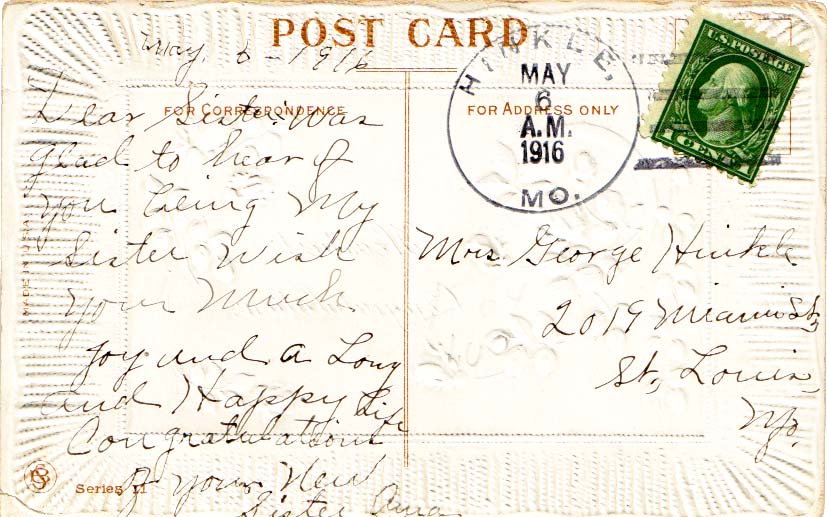 POST CARD
May. 6 - 1916
FOR CORRESPONDENCE
Dear Sister Was
glad to hear of
you being My
Sister Wish
your Much
Joy and a Long
and Happy Life
Congratulations
of your New
Sister
FOR ADDRESS ONLY
HINKLE,
MAY
6
A.M.
1916
MO.
U.S. POSTAGE
1 CENT 1
Mrs George Hinkle
2019 Miami St,
St, Louis,
Mo.
MADE IN
Series 11